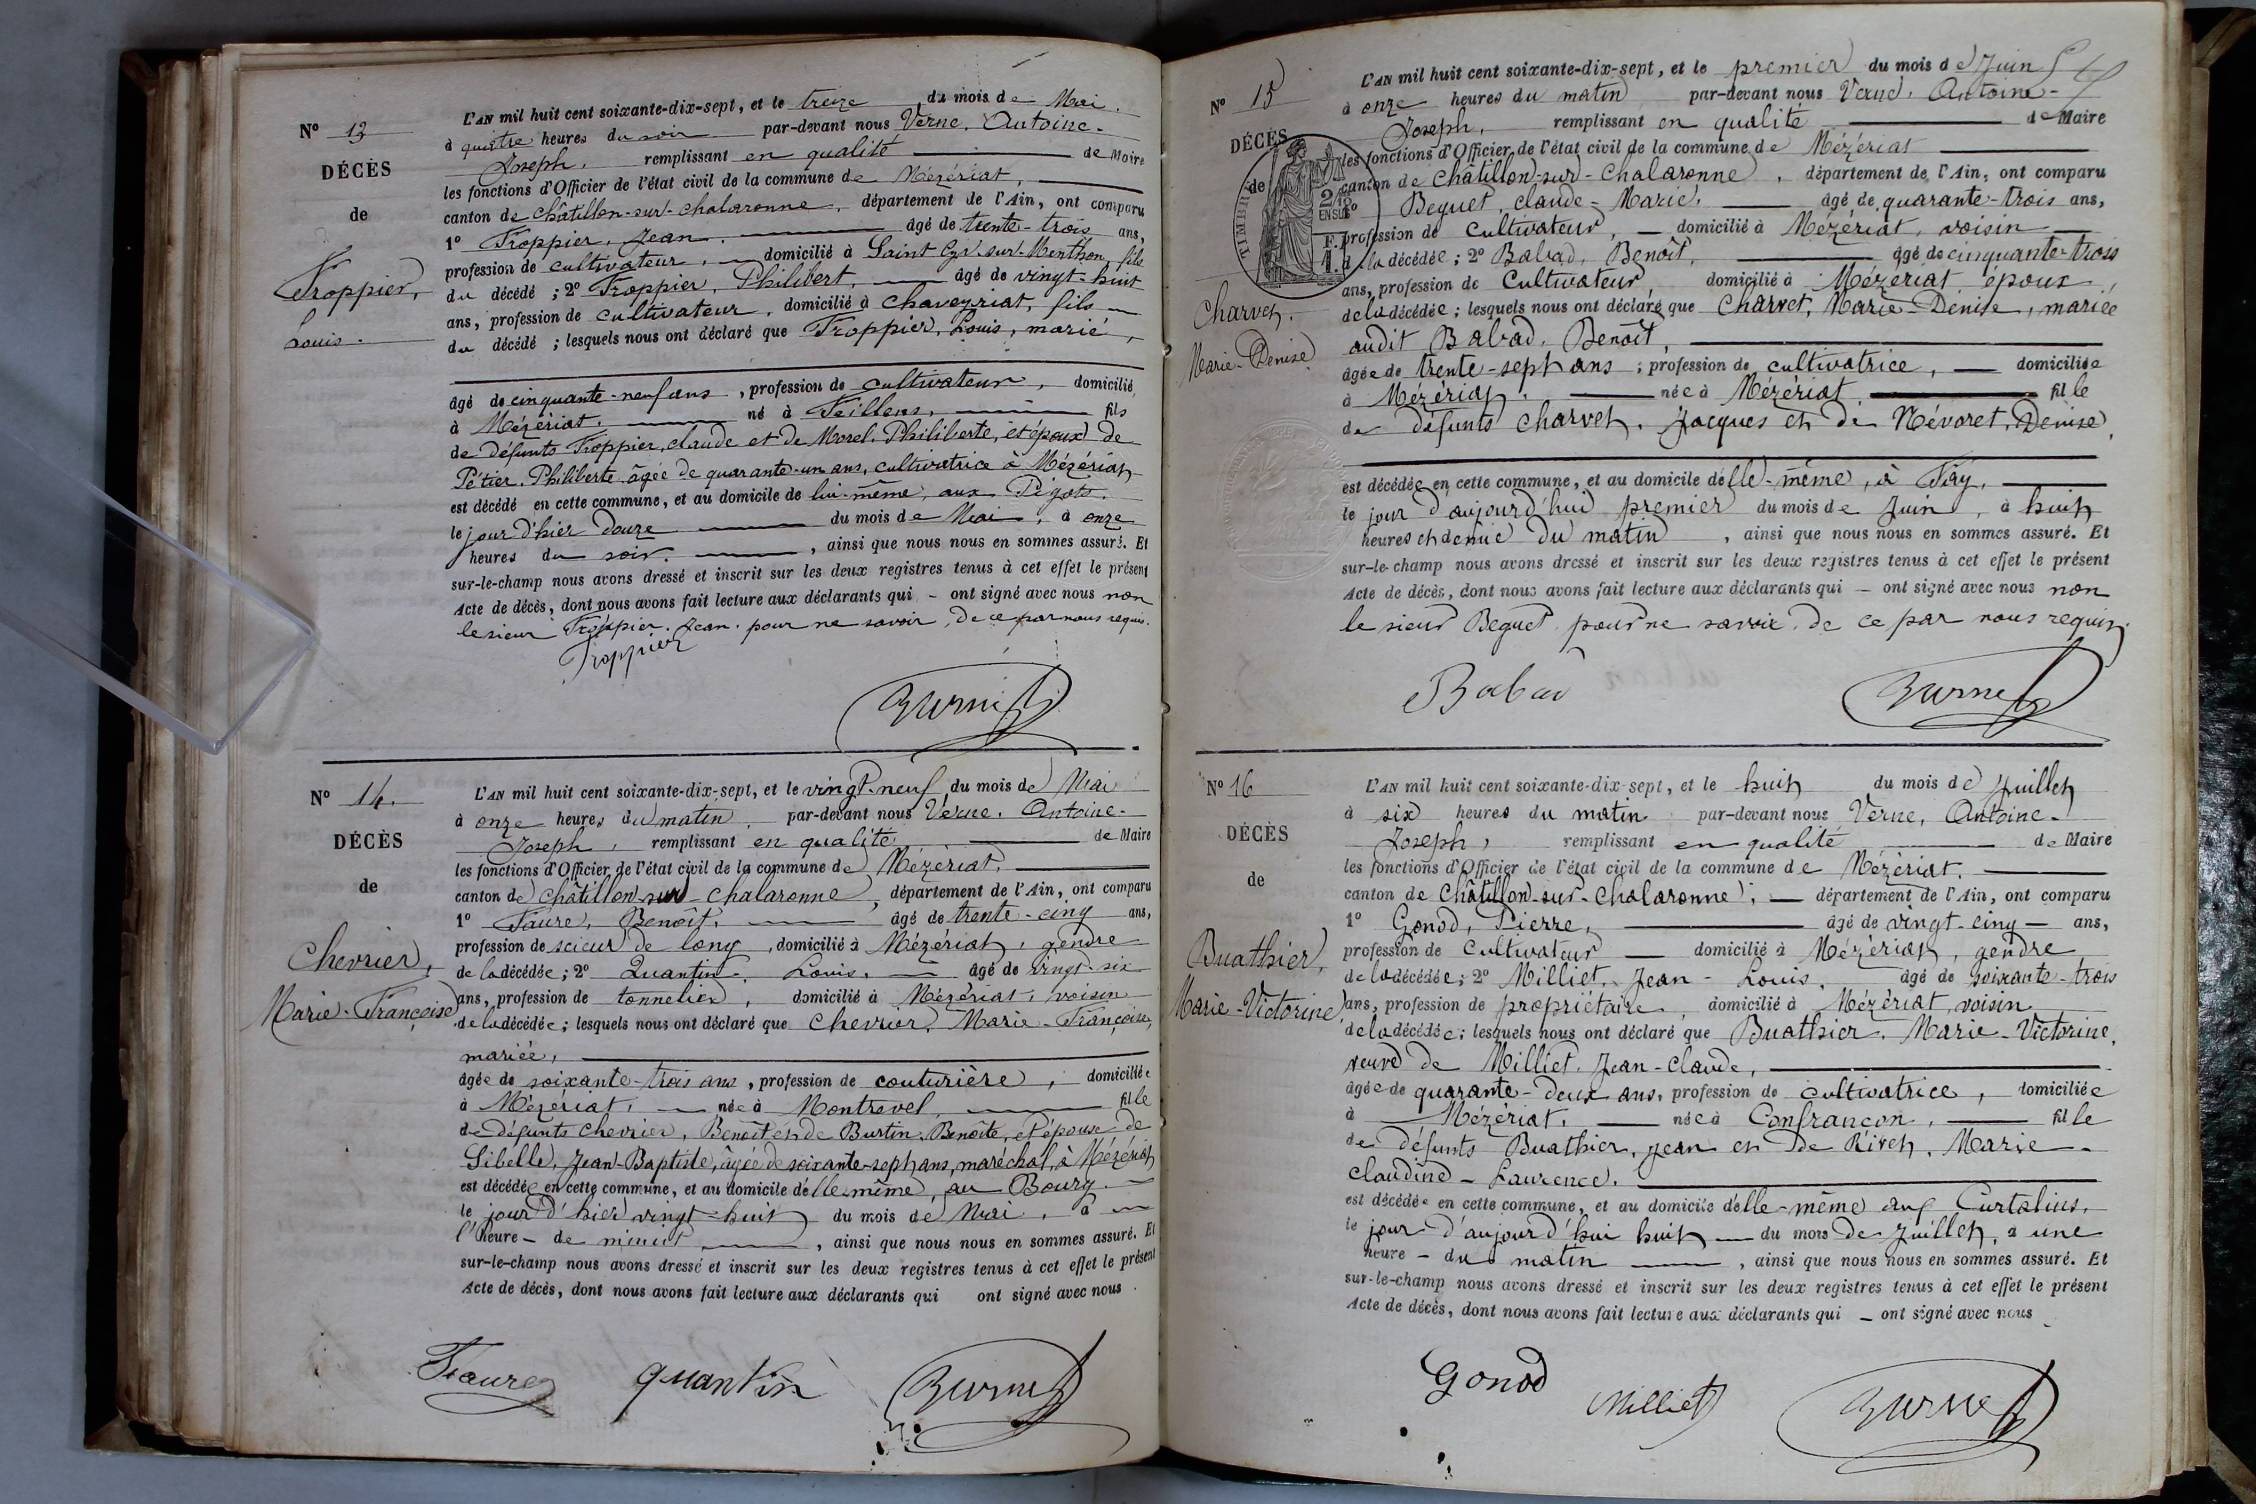 L'AN mil huit cent soixante-dix-sept, et le treize du mois de Mai.
N° 13
à quatre heures du soir par-devant nous Verne, Antoine-
Joseph, remplissant en qualité de Maire
DÉCÈS
les fonctions d'Officier de l'état civil de la commune de Mézériat,
de
canton de Châtillon-sur-Chalaronne, département de l'Ain, ont comparu
1° Froppier, Jean, âgé de trente-trois ans,
profession de cultivateur, domicilié à Saint Cyr-sur-Menthon, fils
Froppier,
du décédé ; 2° Froppier, Philibert, âgé de vingt-huit
ans, profession de cultivateur, domicilié à Chaveyriat, fils
Louis.
du décédé ; lesquels nous ont déclaré que Froppier, Louis, marié,
âgé de cinquante-neuf ans, profession de cultivateur, domicilié
à Mézériat, né à Feillens, fils
de défunts Froppier, Claude et de Morel, Philiberte, et époux de
Pétier, Philiberte, âgée de quarante-un ans, cultivatrice à Mézériat
est décédé en cette commune, et au domicile de lui-même, aux Pigots,
le jour d'hier douze du mois de Mai, à onze
heures du soir, ainsi que nous nous en sommes assuré. Et
sur-le-champ nous avons dressé et inscrit sur les deux registres tenus à cet effet le présent
Acte de décès, dont nous avons fait lecture aux déclarants qui - ont signé avec nous non
le sieur Froppier, Jean, pour ne savoir, de ce par nous requis.
Froppier
Verne
N° 14.
L'AN mil huit cent soixante-dix-sept, et le vingt-neuf du mois de Mai
à onze heures du matin, par-devant nous Verne, Antoine-
DÉCÈS
Joseph, remplissant en qualité de Maire
les fonctions d'Officier de l'état civil de la commune de Mézériat,
de
canton de Châtillon-sur-Chalaronne, département de l'Ain, ont comparu
1° Faure, Benoît, âgé de trente-cinq ans,
profession de scieur de long, domicilié à Mézériat, gendre
Chevrier,
de la décédée ; 2° Quantin, Louis, âgé de vingt-six
Marie-Françoise
ans, profession de tonnelier, domicilié à Mézériat, voisin
de la décédée ; lesquels nous ont déclaré que Chevrier, Marie-Françoise,
mariée,
âgée de soixante-trois ans, profession de couturière, domiciliée
à Mézériat, née à Montrevel, fille
de défunts Chevrier, Benoît et de Burtin, Benoîte, et épouse de
Sibelle, Jean-Baptiste, âgée de soixante-sept ans, maréchal, à Mézériat
est décédée en cette commune, et au domicile d'elle-même, au Bourg.
le jour d'hier vingt-huit du mois de Mai, à
l'heure - de minuit, ainsi que nous nous en sommes assuré. Et
sur-le-champ nous avons dressé et inscrit sur les deux registres tenus à cet effet le présent
Acte de décès, dont nous avons fait lecture aux déclarants qui ont signé avec nous.
Faure
quantin
Verne
L'AN mil huit cent soixante-dix-sept, et le premier du mois de Juin
N° 15
à onze heures du matin par-devant nous Verne, Antoine-
Joseph, remplissant en qualité de Maire
DÉCÈS
les fonctions d'Officier de l'état civil de la commune de Mézériat
de
canton de Châtillon-sur-Chalaronne, département de l'Ain, ont comparu
TIMBRE
2/10
EN SUS
1° Beguet, Claude-Marie, âgé de quarante-trois ans,
profession de Cultivateur, domicilié à Mézériat, voisin
de la décédée ; 2° Babad, Benoît, âgé de cinquante-trois
ans, profession de Cultivateur, domicilié à Mézériat, époux
Charvet,
de la décédée ; lesquels nous ont déclaré que Charvet, Marie-Denise, mariée
Marie-Denise
audit Babad, Benoît,
âgée de trente-sept ans ; profession de cultivatrice, domiciliée
à Mézériat, née à Mézériat, fille
de défunts Charvet, Jacques et de Névoret, Denise,
est décédée en cette commune, et au domicile d'elle-même, à Fay,
le jour d'aujourd'hui premier du mois de Juin, à huit
heures et demie du matin, ainsi que nous nous en sommes assuré. Et
sur-le-champ nous avons dressé et inscrit sur les deux registres tenus à cet effet le présent
Acte de décès, dont nous avons fait lecture aux déclarants qui - ont signé avec nous non
le sieur Beguet pour ne savoir, de ce par nous requis.
Babad
Verne
N° 16
L'AN mil huit cent soixante-dix-sept, et le huit du mois de Juillet
à six heures du matin par-devant nous Verne, Antoine-
DÉCÈS
Joseph, remplissant en qualité de Maire
les fonctions d'Officier de l'état civil de la commune de Mézériat,
de
canton de Châtillon-sur-Chalaronne, département de l'Ain, ont comparu
1° Gonod, Pierre, âgé de vingt-cinq ans,
Buathier,
profession de Cultivateur domicilié à Mézériat, gendre
de la décédée ; 2° Milliet, Jean-Louis, âgé de soixante-trois
Marie-Victorine
ans, profession de propriétaire, domicilié à Mézériat, voisin
de la décédée ; lesquels nous ont déclaré que Buathier, Marie-Victorine,
veuve de Milliet, Jean-Claude,
âgée de quarante-deux ans, profession de cultivatrice, domiciliée
à Mézériat, née à Confrançon, fille
de défunts Buathier, Jean et de Rivet, Marie-
Claudine-Laurence,
est décédée en cette commune, et au domicile d'elle-même aux Curtalins,
le jour d'aujourd'hui huit du mois de Juillet, à une
heure - du matin, ainsi que nous nous en sommes assuré. Et
sur-le-champ nous avons dressé et inscrit sur les deux registres tenus à cet effet le présent
Acte de décès, dont nous avons fait lecture aux déclarants qui - ont signé avec nous
Gonod
Milliet
Verne